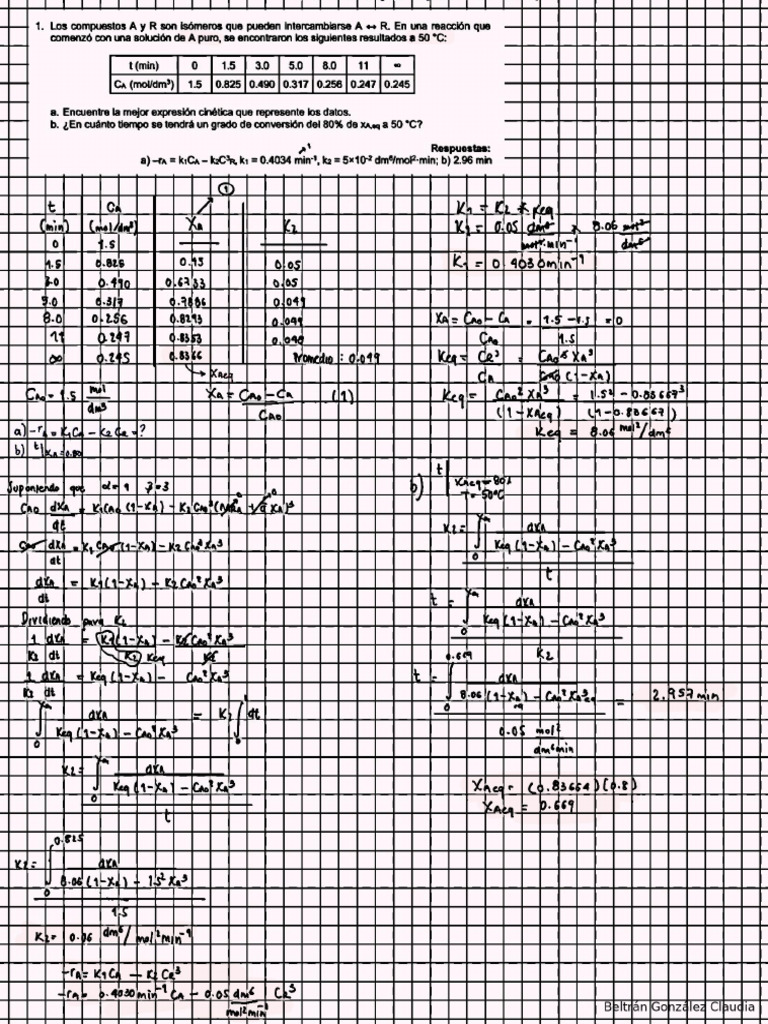 1. Los compuestos A y R son isómeros que pueden intercambiarse A ↔ R. En una reacción que
comenzó con una solución de A puro, se encontraron los siguientes resultados a 50 °C:
t (min) 0 1.5 3.0 5.0 8.0 11 ∞
CA (mol/dm³) 1.5 0.825 0.490 0.317 0.256 0.247 0.245
a. Encuentre la mejor expresión cinética que represente los datos.
b. ¿En cuánto tiempo se tendrá un grado de conversión del 80% de xA,eq a 50 °C?
Respuestas:
a) –rA = k1CA – k2C³R, k1 = 0.4034 min⁻¹, k2 = 5×10⁻² dm⁶/mol²·min; b) 2.96 min
t CA XA K2
(min) (mol/dm³)
0 1.5
1.5 0.825 0.45 0.05
3.0 0.490 0.6733 0.05
5.0 0.317 0.7886 0.049
8.0 0.256 0.8293 0.049
11 0.247 0.8353
∞ 0.245 0.8366 Promedio: 0.049
XAeq
CA0 = 1.5 mol/dm³ XA = CA0 - CA / CA0 (1)
a) -rA = K1CA - K2CR = ?
b) t| XA = 0.80
Suponiendo que α = 1 β = 3
CA0 dXA/dt = K1CA0 (1-XA) - K2 CA0³
CA0 dXA/dt = K1 CA0 (1-XA) - K2 CA0³XA³
dXA/dt = K1(1-XA) - K2 CA0²XA³
Dividiendo para K2
1/K2 dXA/dt = K1(1-XA)/K2 - K2 CA0²XA³/K2
Keq
1/K2 dXA/dt = Keq (1-XA) - CA0²XA³
∫0 XA dXA / Keq (1-XA) - CA0²XA³ = K2 ∫0 t dt
K2 = ∫0 XA dXA / Keq (1-XA) - CA0²XA³ / t
K2 = ∫0 0.825 dXA / 8.06 (1-XA) - 1.5² XA³ / 1.5
K2 = 0.06 dm⁶/mol²min⁻¹
-rA = K1 CA - K2 CR³
-rA = 0.4030 min⁻¹ CA - 0.05 dm⁶/mol²min⁻¹ CR³
K1 = K2 * Keq
K1 = 0.05 dm⁶/mol²·min⁻¹ * 8.06 mol²/dm⁶
K1 = 0.4030 min⁻¹
XA = CA0 - CA / CA0 = 1.5 - 1.5 / 1.5 = 0
Keq = CR³/CA = CA0³ XA³ / CA0 (1-XA)
Keq = CA0² XA³ / (1-XAeq) = 1.5² - 0.83667³ / (1-0.83667)
Keq = 8.06 mol²/dm⁶
b) t| XAeq = 80% T = 50°C
K2 = ∫0 XA dXA / Keq (1-XA) - CA0²XA³ / t
t = ∫0 XA dXA / Keq (1-XA) - CA0²XA³ / K2
t = ∫0 0.669 dXA / 8.06 (1-XA) - CA0²XA³eq / 0.05 mol²/dm⁶min = 2.957 min
XAeq = (0.83664)(0.8)
XAeq = 0.669
Beltrán González Claudia